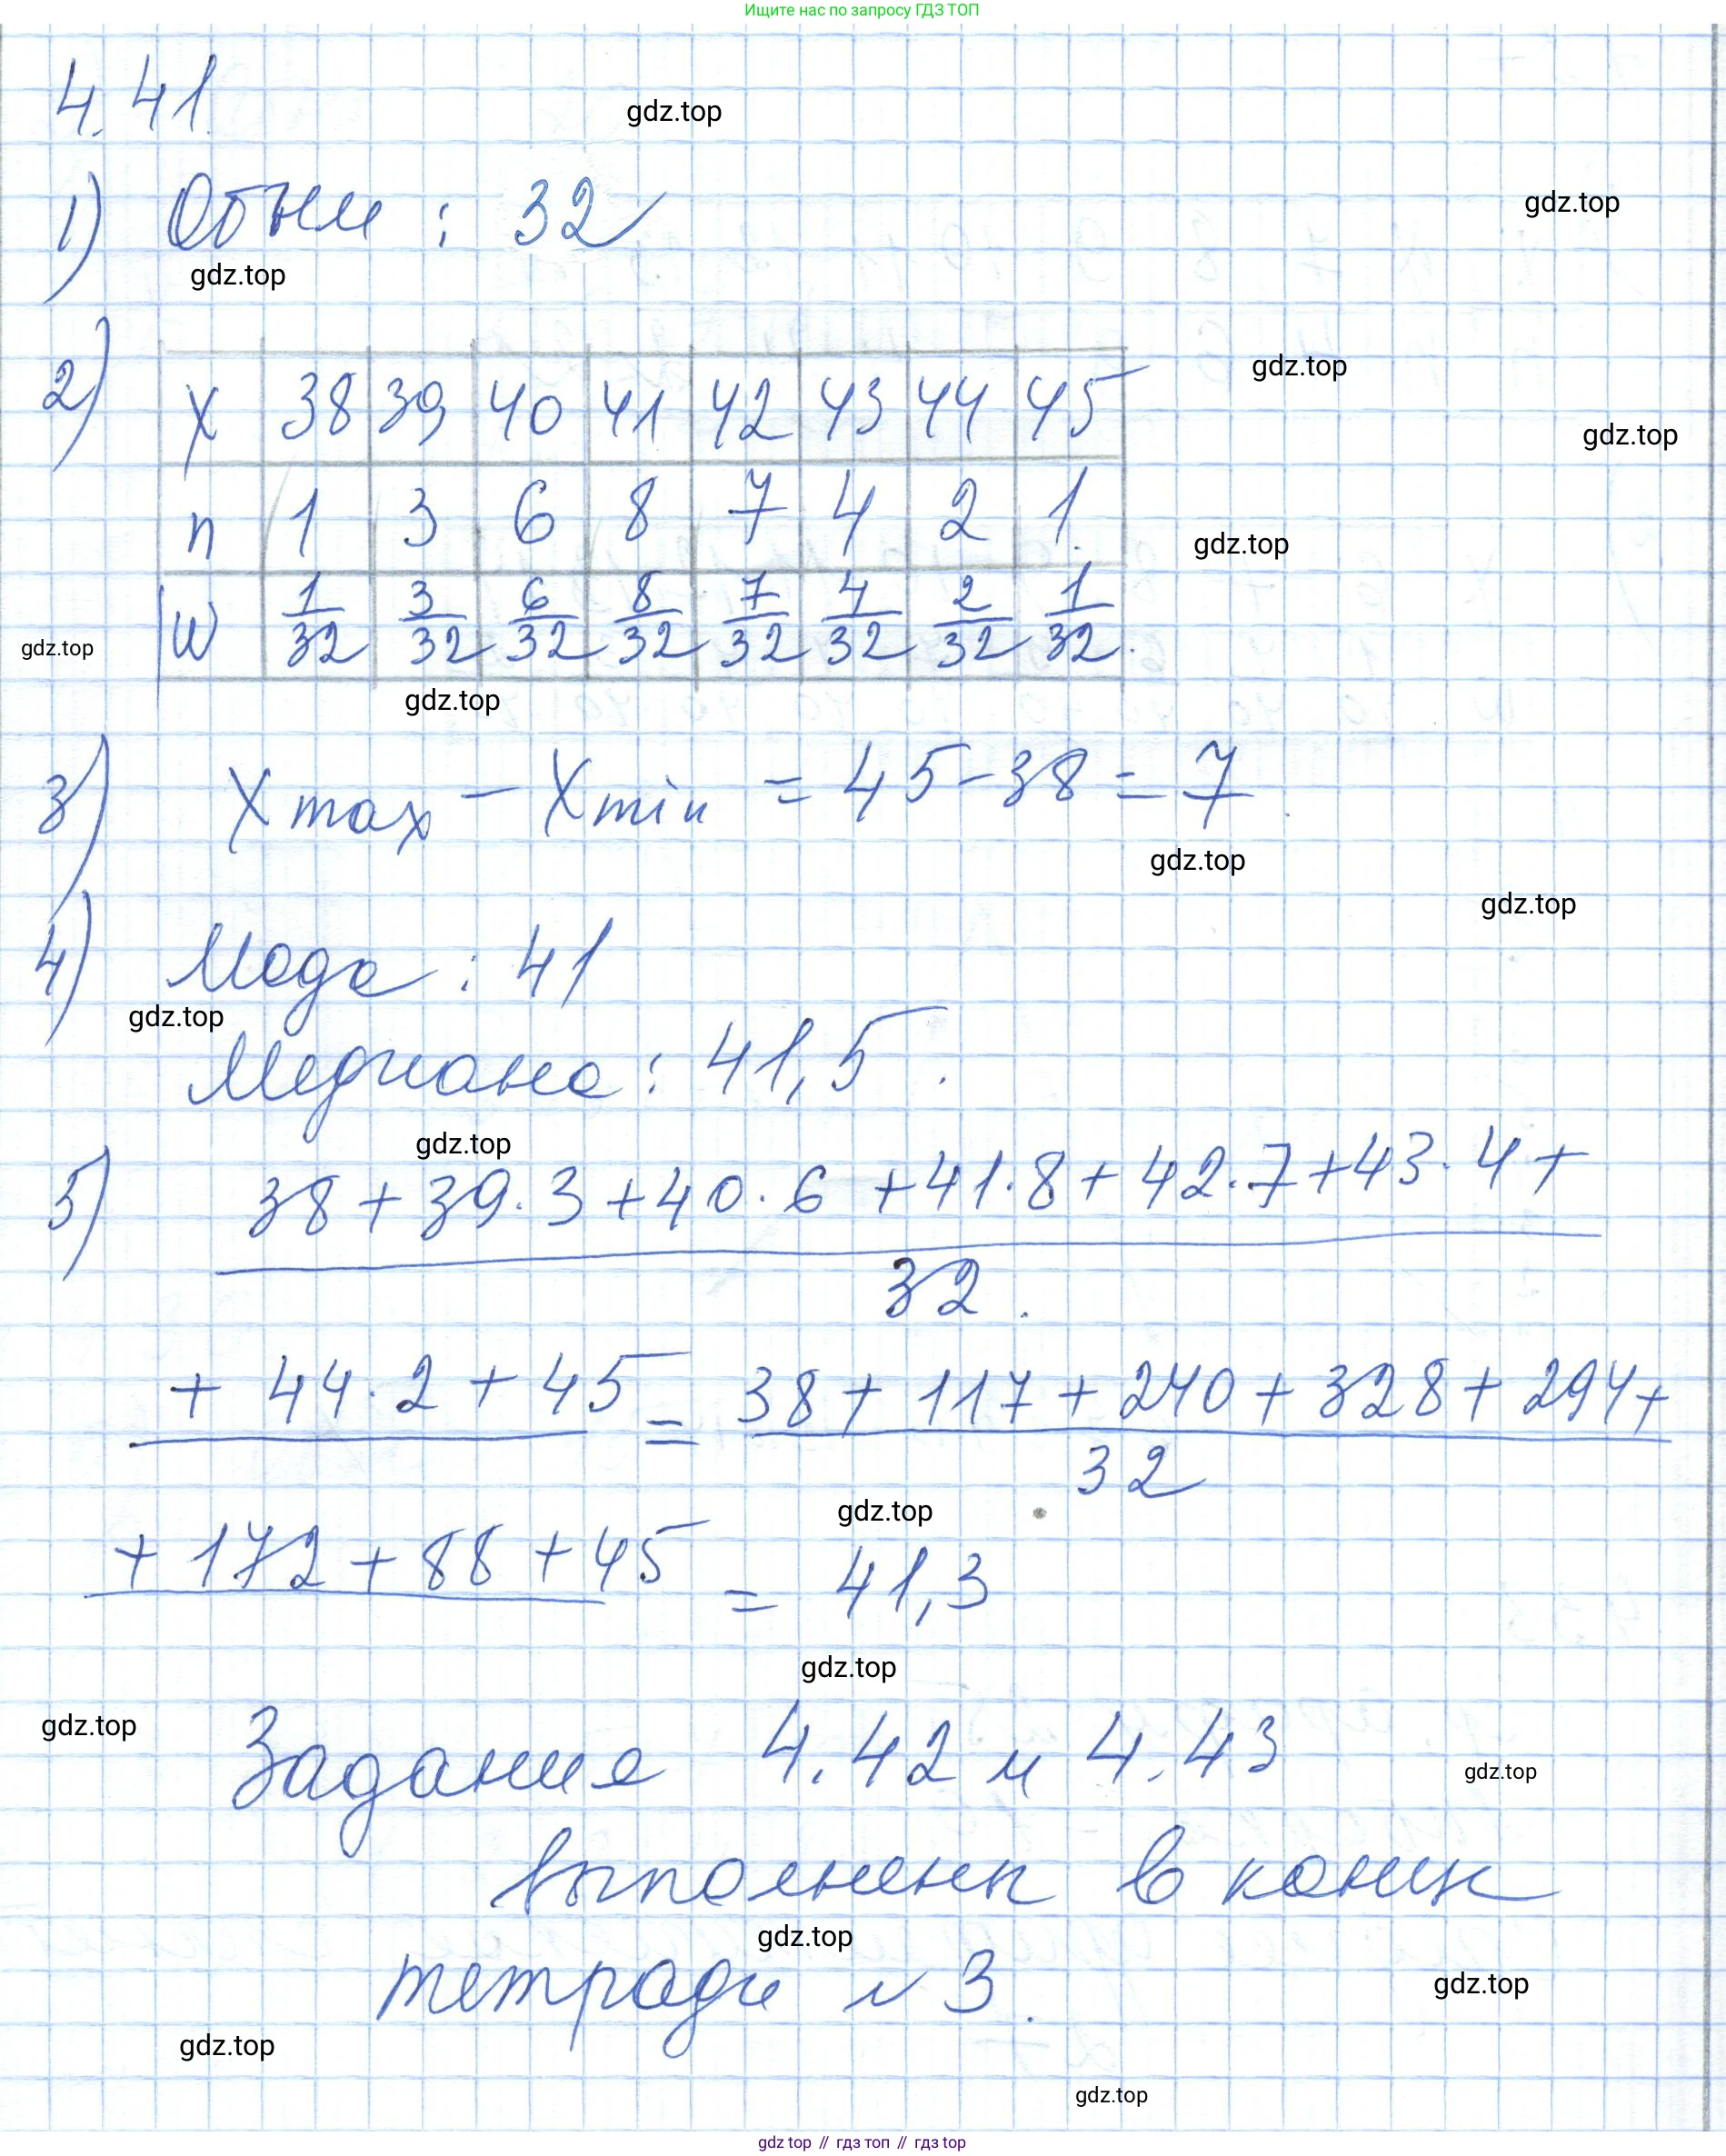 Ищите нас по запросу ГДЗ ТОП
4.41
gdz.top
1) Объем : 32
gdz.top
gdz.top
2)
x 38 39 40 41 42 43 44 45
gdz.top
gdz.top
n 1 3 6 8 7 4 2 1
gdz.top
W 1/32 3/32 6/32 8/32 7/32 4/32 2/32 1/32
gdz.top
gdz.top
3) Xmax - Xmin = 45-38 = 7
gdz.top
gdz.top
4) Мода : 41
gdz.top
Медиана : 41,5
gdz.top
5) 38 + 39·3 + 40·6 + 41·8 + 42·7 + 43·4 +
32
+ 44·2 + 45 = 38 + 117 + 240 + 328 + 294 +
32
gdz.top
+ 172 + 88 + 45 = 41,3
gdz.top
gdz.top
Задания 4.42 и 4.43
gdz.top
выполнены в конце
gdz.top
тетради №3.
gdz.top
gdz.top
gdz.top
gdz top // гдз топ // gdz.top